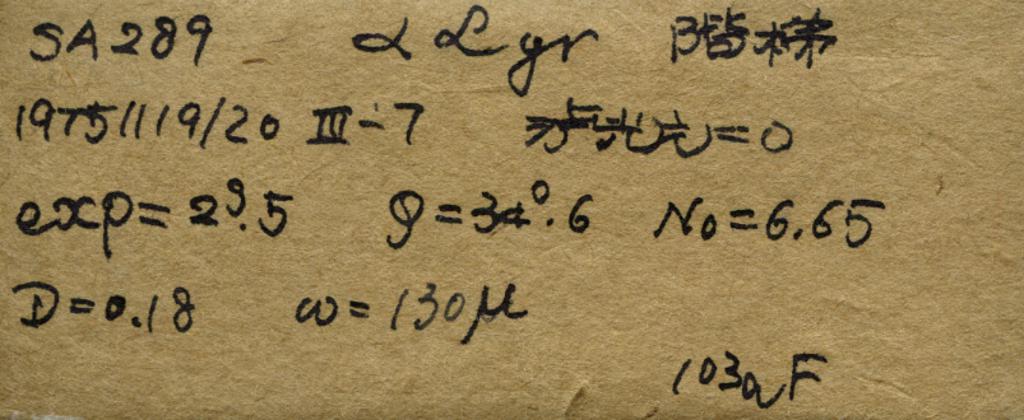 SA289 α Lyr 階梯
19751119/20 III-7 =0
exp=2ˢ.5 φ=34°.6 No=6.65
D=0.18 ω=130μ
103aF